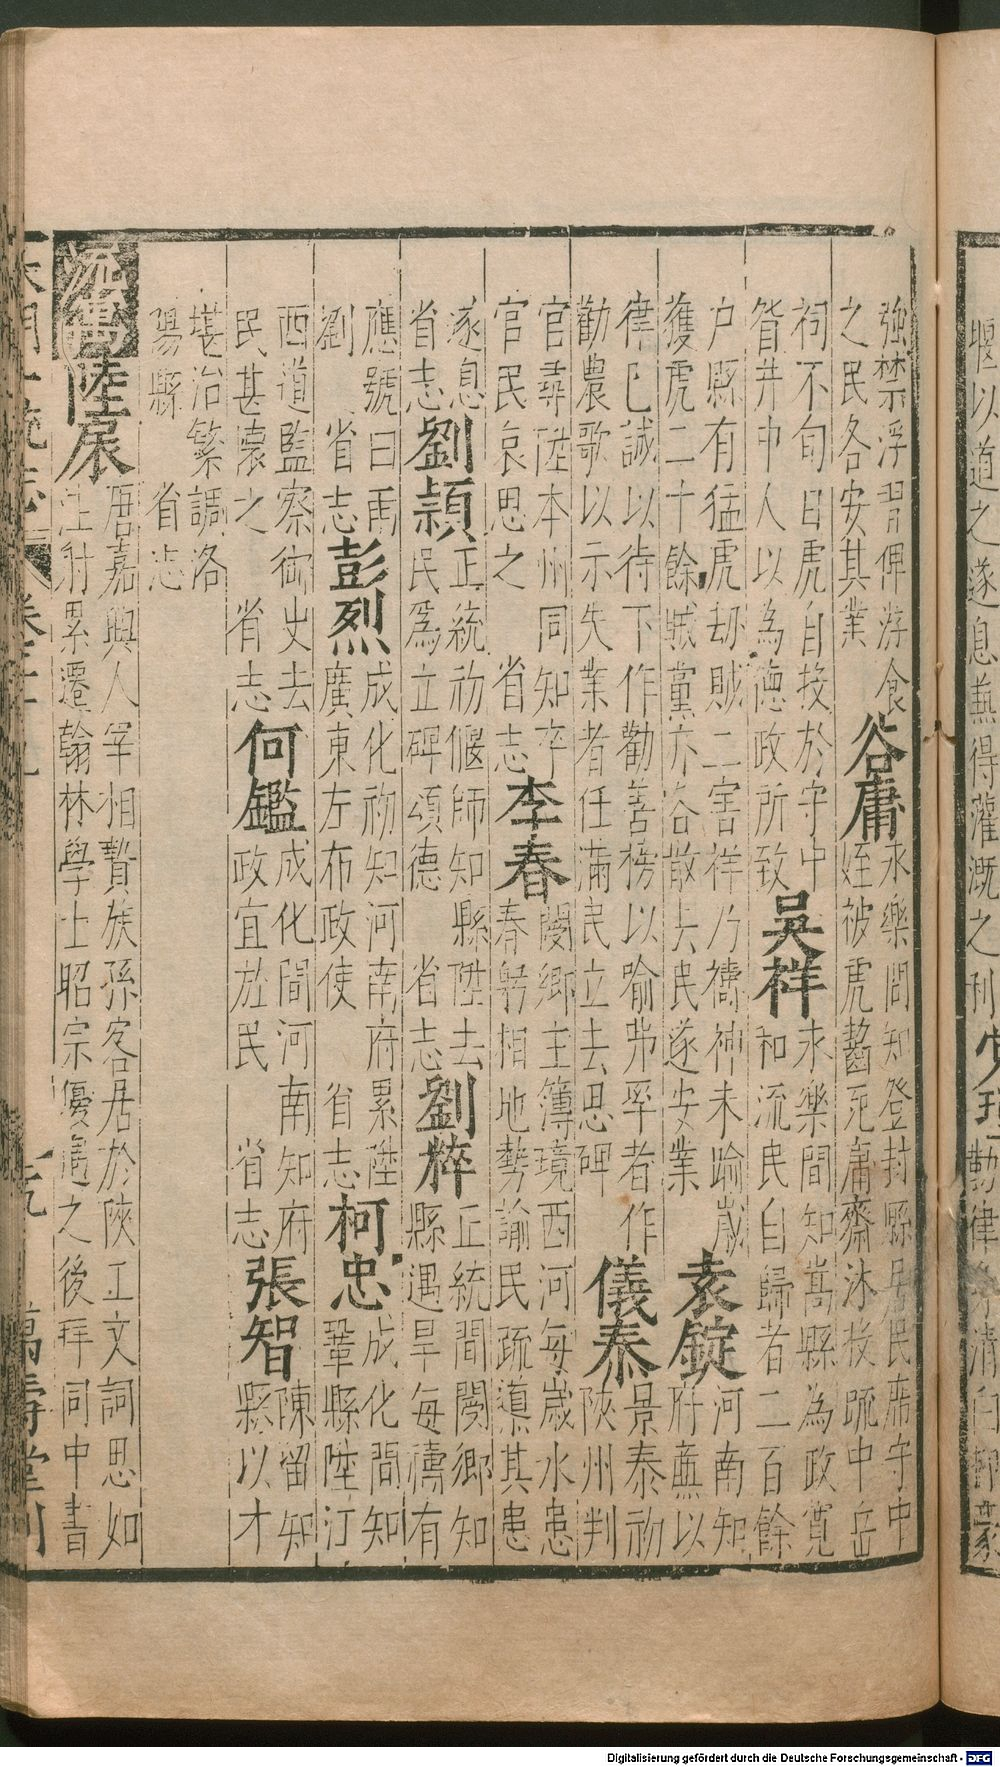 堰以道之遂息無得灌溉之利
強禁浮習俾游食谷庸永樂間知登封縣居民席守中
之民各安其業姪被虎齧死庸齋沐投疏中岳
祠不旬日虎自投於守中吳祥永樂間知嵩縣為政寬
眢井中人以為德政所致和流民自歸者二百餘
户縣有猛虎刼賊二害祥乃禱神未踰歲袁錠河南知
獲虎二十餘賊黨亦各散去民遂安業府廉以
律已誠以待下作勸善榜以喻弗率者作儀泰景泰初
勸農歌以示失業者任滿民立去思碑陝州判
官尋陞本州同知卒李春閿鄉主簿境西河每歲水患
官民哀思之 省志春躬相地勢諭民疏道其患
遂息劉頴正統初偃師知縣陞去劉粹正統間閿鄉知
省志民為立碑頌德 省志縣遇旱每禱有
應號曰雨彭烈成化初知河南府累陞柯忠成化間知
劉 省志廣東左布政使 省志鞏縣陞汀
西道監察御史去何鑑成化間河南知府張智陳留知
民甚懷之 省志政宜於民 省志縣以才
堪治繁調洛
陽縣 省志
流寓陸扆唐嘉興人宰相贄族孫客居於陝工文詞思如
注射累遷翰林學士昭宗優遇之後拜同中書
大明一統志 卷二十九 萬壽堂刊
Digitalisierung gefördert durch die Deutsche Forschungsgemeinschaft - DFG